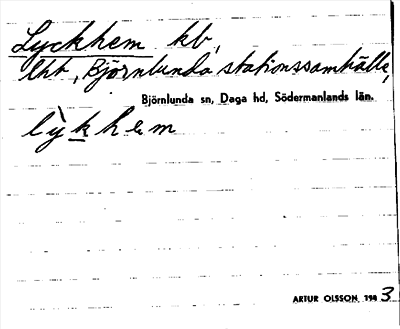 Lyckhem kb,
lht, Björnlunda stationssamhälle,
Björnlunda sn, Daga hd, Södermanlands län.
lỳkhem
ARTUR OLSSON 1943